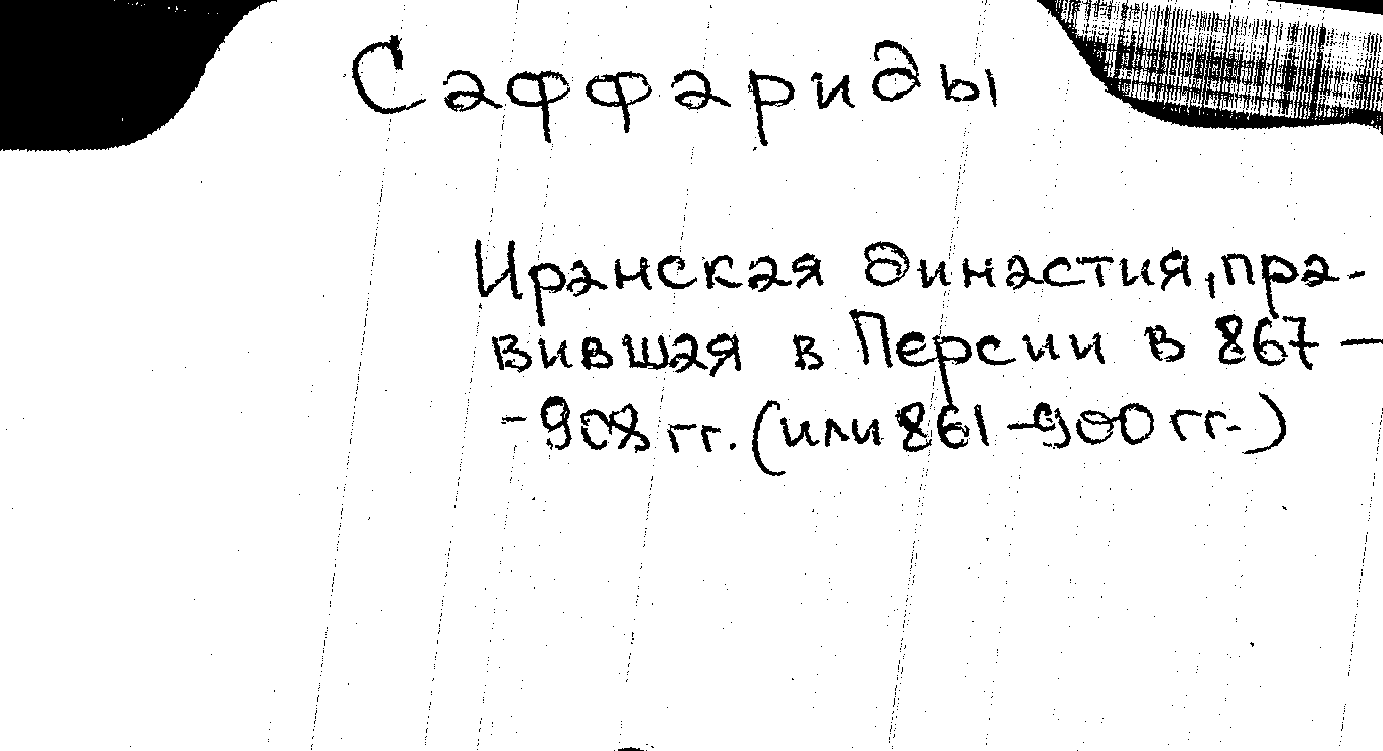 Саффариды
Иранская династия, пра-
вившая в Персии в 867 —
- 908 гг. (или 861 - 900 гг.)